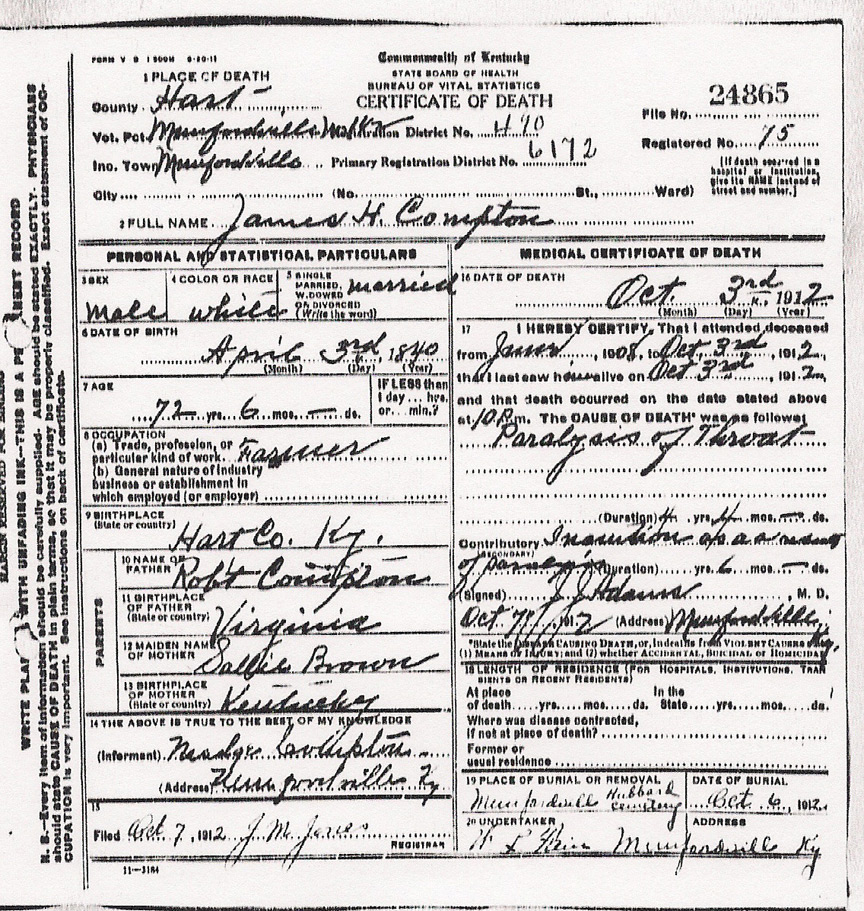 FORM V S 1 500M 8-20-11
Commonwealth of Kentucky
STATE BOARD OF HEALTH
BUREAU OF VITAL STATISTICS
CERTIFICATE OF DEATH
1 PLACE OF DEATH
County Hart
Vot. Pct. Munfordville Registration District No. 490
Inc. Town Munfordville Primary Registration District No. 6172
City (No. St., Ward)
File No. 24865
Registered No. 75
[If death occurred in a
hospital or institution,
give its NAME instead of
street and number.]
2 FULL NAME James H. Compton
PERSONAL AND STATISTICAL PARTICULARS
3 SEX
Male
4 COLOR OR RACE
white
5 SINGLE
MARRIED,
WIDOWED
OR DIVORCED
(Write the word)
married
6 DATE OF BIRTH
April 3rd 1840
(Month) (Day) (Year)
7 AGE
72 yrs. 6 mos. — ds.
IF LESS than
1 day... hrs.
or... min.?
8 OCCUPATION
(a) Trade, profession, or
particular kind of work Farmer
(b) General nature of industry
business or establishment in
which employed (or employer)
9 BIRTHPLACE
(State or country)
Hart Co. Ky.
PARENTS
10 NAME OF
FATHER
Rob't Compton
11 BIRTHPLACE
OF FATHER
(State or country)
Virginia
12 MAIDEN NAME
OF MOTHER
Sallie Brown
13 BIRTHPLACE
OF MOTHER
(State or country)
Kentucky
14 THE ABOVE IS TRUE TO THE BEST OF MY KNOWLEDGE
(Informant) Madge Compton
(Address) Munfordville Ky
15
Filed Oct 7, 1912 J. M. Jones
REGISTRAR
11-3184
MEDICAL CERTIFICATE OF DEATH
16 DATE OF DEATH
Oct. 3rd, 1912
(Month) (Day) (Year)
17 I HEREBY CERTIFY, That I attended deceased
from June, 1908, to Oct 3rd, 1912,
that I last saw him alive on Oct 3rd, 1912,
and that death occurred on the date stated above
at 10 P.m. The CAUSE OF DEATH* was as follows
Paralysis of Throat
(Duration) 4 yrs. 4 mos. — ds.
Contributory Inanition as a result
(SECONDARY)
of paralysis (Duration) yrs. 6 mos. — ds.
(Signed) J J Adams, M. D.
Oct 7, 1912 (Address) Munfordville, Ky.
*State the DISEASE CAUSING DEATH, or, in deaths from VIOLENT CAUSES state
(1) MEANS OF INJURY; and (2) whether ACCIDENTAL, SUICIDAL OR HOMICIDAL
18 LENGTH OF RESIDENCE (FOR HOSPITALS, INSTITUTIONS, TRAN
SIENTS OR RECENT RESIDENTS)
At place In the
of death yrs. mos. ds. State yrs. mos. ds.
Where was disease contracted,
if not at place of death?
Former or
usual residence
19 PLACE OF BURIAL OR REMOVAL
Munfordville Hubbard Cemetery
DATE OF BURIAL
Oct 6, 1912
20 UNDERTAKER
Munfordville Ky
ADDRESS
MARGIN RESERVED FOR BINDING
WRITE PLAINLY WITH UNFADING INK—THIS IS A PERMANENT RECORD
N. B.—Every item of information should be carefully supplied. AGE should be stated EXACTLY. PHYSICIANS
should state CAUSE OF DEATH in plain terms, so that it may be properly classified. Exact statement of OC-
CUPATION is very important. See instructions on back of certificate.